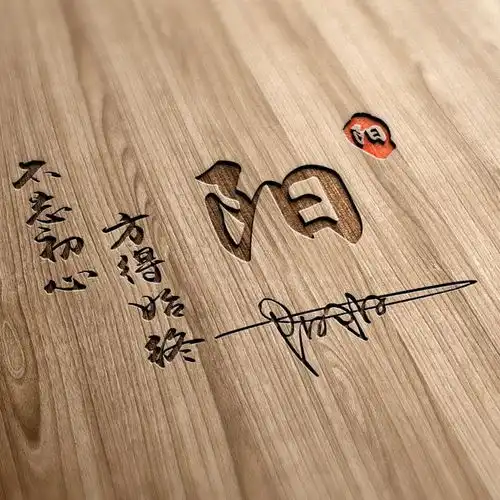 不忘初心
方得始终
阳
阳